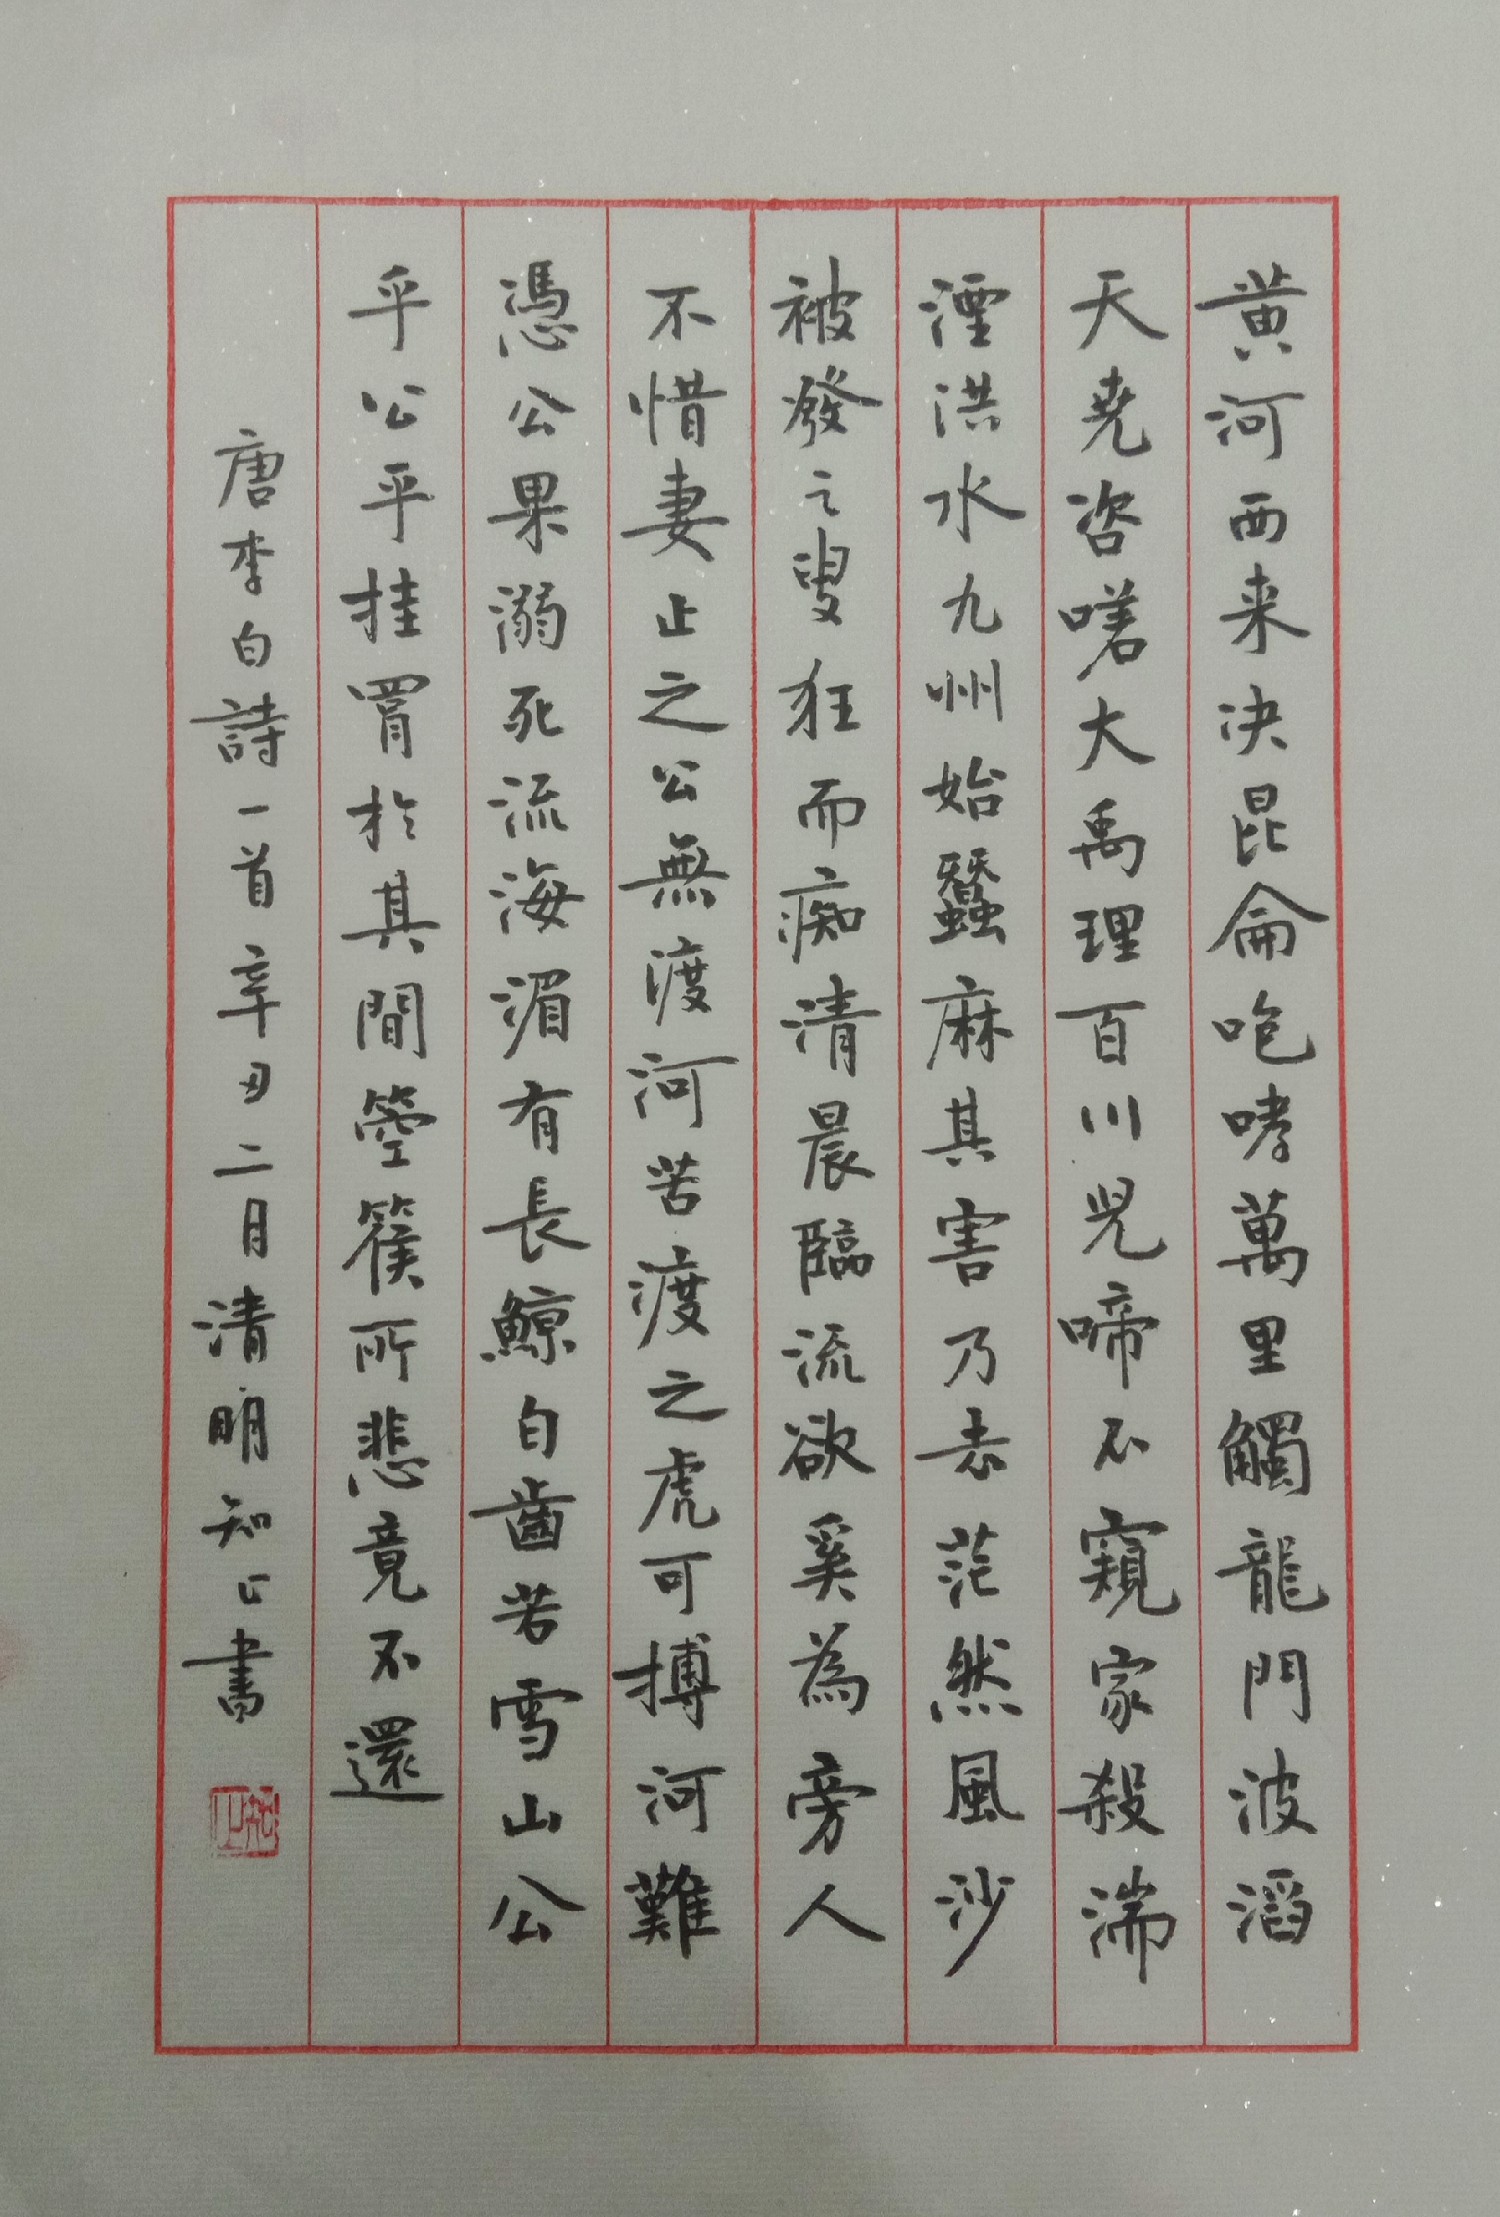 黄河西来决昆侖咆哮萬里觸龍門波滔
天堯咨嗟大禹理百川兒啼不窺家殺湍
湮洪水九州始蠶麻其害乃去茫然風沙
被發之叟狂而痴清晨臨流欲奚為旁人
不惜妻止之公無渡河苦渡之虎可搏河難
憑公果溺死流海湄有長鯨白齒若雪山公
乎公乎挂罥於其間箜篌所悲竟不還
唐李白詩一首辛丑二月清明知止書
知止